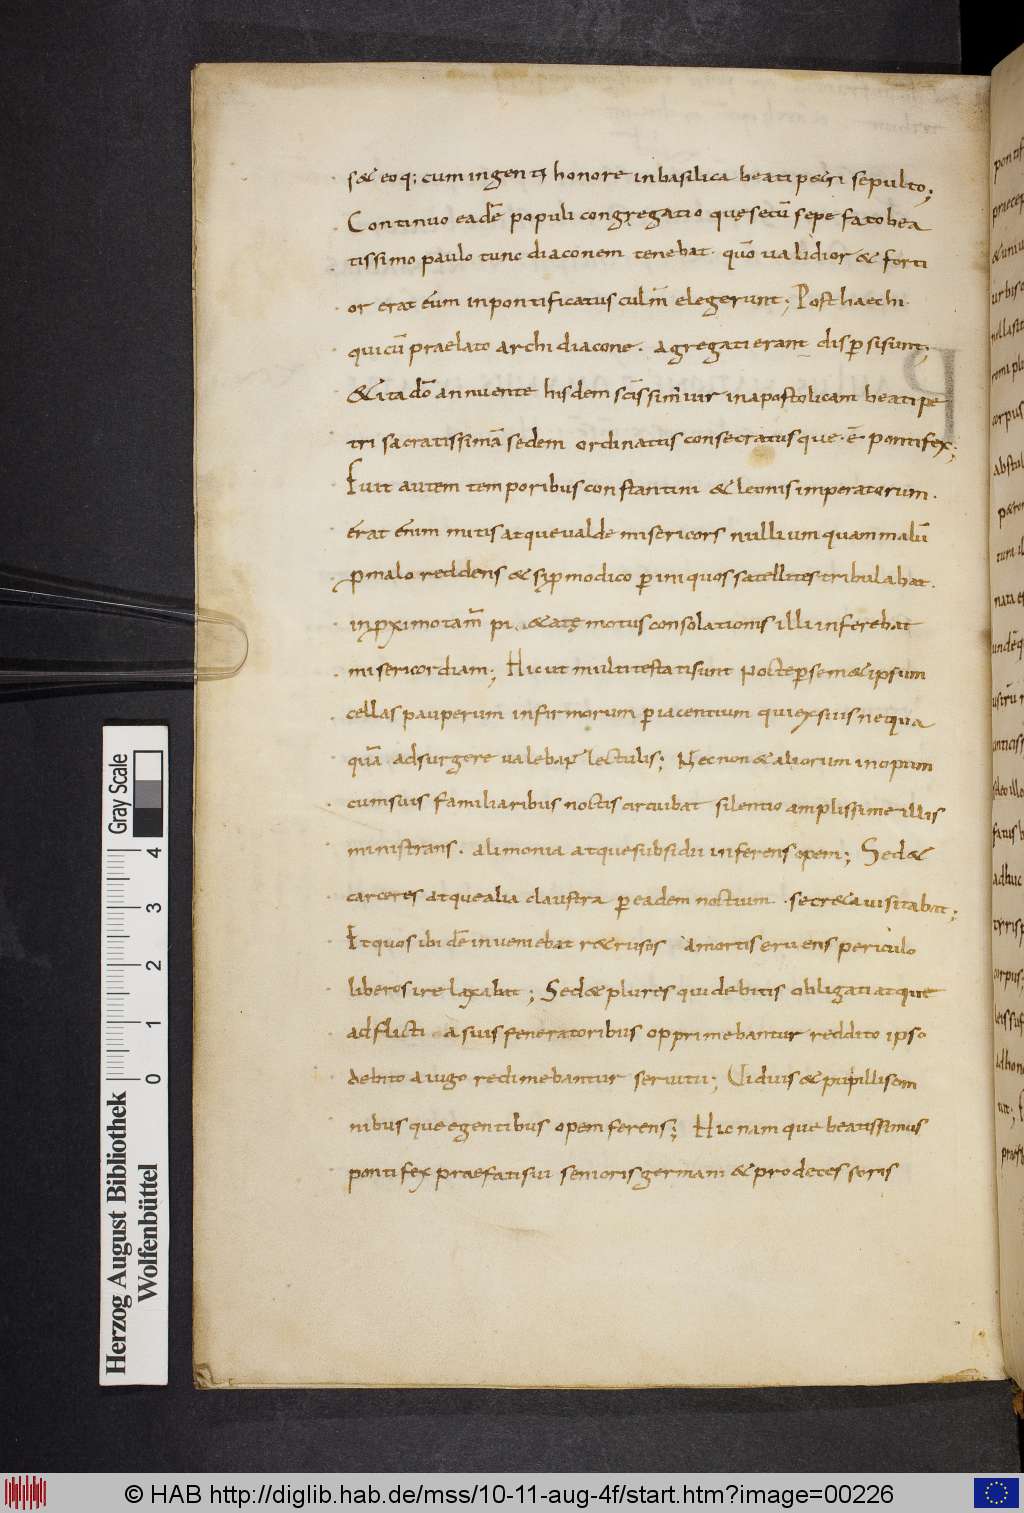 s&eoq; cum ingenti honore in basilica beati p&ri sepulto;
Continuo eadē populi congregatio quę secū sepe fato bea
tissimo paulo tunc diaconem tenebat. quō ualidior & forti
or erat eum in pontificatus culm̄ elegerunt; Post haec hi
qui cū praelato archidiacone. agregati erant dispersi sunt;
& ita dō annuente hisdem scīssim uir in apostolicam beati pe
tri sacratissimā sedem ordinatus consecratusque. ē pontifex;
Fuit autem temporibus constantini & leonis imperatorum.
erat enim mitis atque ualde misericors nulli umquam malū
p malo reddens & sup modico p iniquos satellites tribulabat.
in pximo tam̄ pi & ate motus consolationis illi inferebat
misericordiam; Hic ut multi testati sunt nocte p sem&ipsum
cellas pauperum infirmorum p iacentium qui ex suis nequa
quā adsurgere ualebant lectulis; Necnon & aliorum inopum
cum suis familiaribus noctis circuibat silentio amplissime illis
ministrans. alimonia atque subsidii inferens opem; Sed &
carceres atque alia claustra p eadem noctium. secr&a uisitabat;
Et quos ibidē inueniebat r&rusos a mortis eruens periculo
liberos ire laxabat; Sed & plures qui debitis obligati atque
adflicti a suis feneratoribus opprimebantur reddito ipso
debito a iugo redimebantur seruitu; Uiduis & pupillis om
nibusque egentibus opem ferens; Hic namque beatissimus
pontifex praefati sui senioris germani & prodecessoris
Gray Scale
4
3
2
1
0
Herzog August Bibliothek
Wolfenbüttel
© HAB http://diglib.hab.de/mss/10-11-aug-4f/start.htm?image=00226